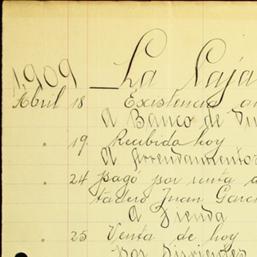 1909 La Caja
Abril 18 Existencia an
A Banco de
" 19 Recibida hoy
A Arrendamientos
" 24 pagó por renta a
tadero Juan Garc
A Tienda
" 25 Venta de hoy
Por Dividendos